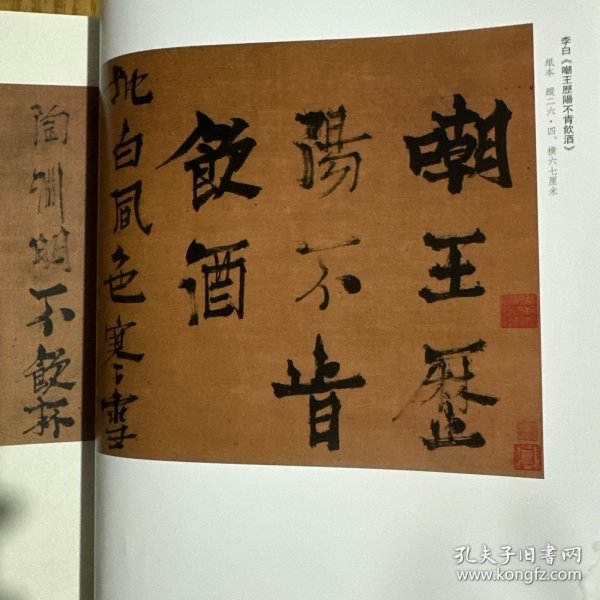 李白《嘲王歷陽不肯飲酒》
紙本 縱二六·四、橫六七厘米
嘲王歷
陽不肯
飲酒
地白風色寒雪
陶淵明不飲杯
孔夫子旧书网
www.kongfz.com